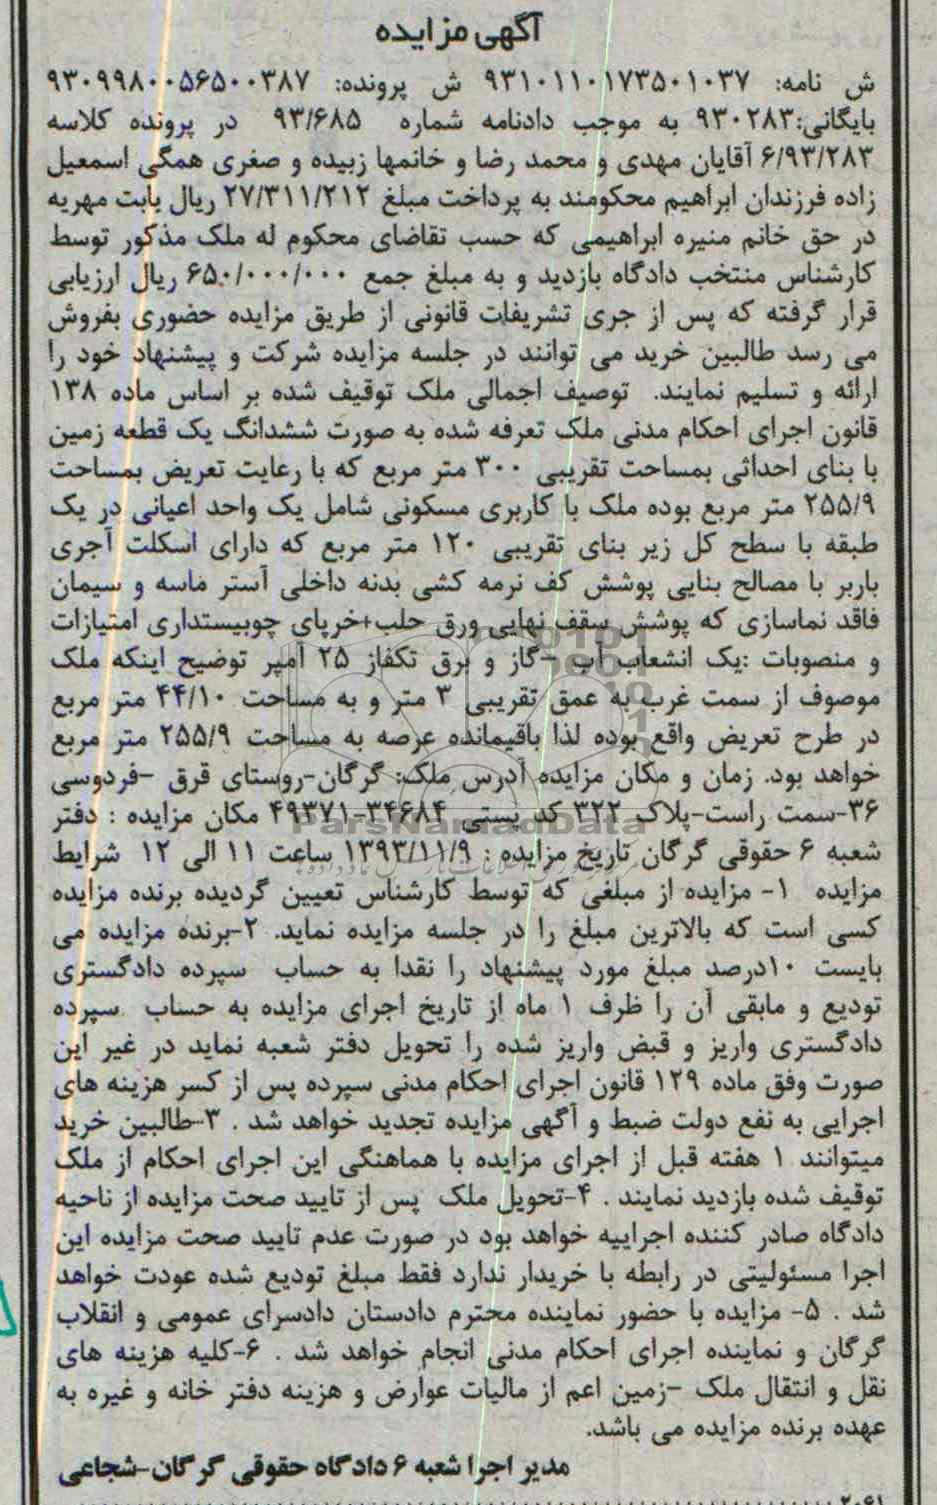 آگهی مزایده
ش نامه: ۹۳۱۰۱۱۰۱۷۳۵۰۱۰۳۷ ش پرونده: ۹۳۰۹۹۸۰۰۵۶۵۰۰۳۸۷
بایگانی:۹۳۰۲۸۳ به موجب دادنامه شماره ۹۳/۶۸۵ در پرونده کلاسه
۶/۹۳/۲۸۳ آقایان مهدی و محمد رضا و خانمها زبیده و صغری همگی اسمعیل
زاده فرزندان ابراهیم محکومند به پرداخت مبلغ ۲۷/۳۱۱/۲۱۲ ریال بابت مهریه
در حق خانم منیره ابراهیمی که حسب تقاضای محکوم له ملک مذکور توسط
کارشناس منتخب دادگاه بازدید و به مبلغ جمع ۶۵۰/۰۰۰/۰۰۰ ریال ارزیابی
قرار گرفته که پس از جری تشریفات قانونی از طریق مزایده حضوری بفروش
می رسد طالبین خرید می توانند در جلسه مزایده شرکت و پیشنهاد خود را
ارائه و تسلیم نمایند. توصیف اجمالی ملک توقیف شده بر اساس ماده ۱۳۸
قانون اجرای احکام مدنی ملک تعرفه شده به صورت ششدانگ یک قطعه زمین
با بنای احداثی بمساحت تقریبی ۳۰۰ متر مربع که با رعایت تعریض بمساحت
۲۵۵/۹ متر مربع بوده ملک با کاربری مسکونی شامل یک واحد اعیانی در یک
طبقه با سطح کل زیر بنای تقریبی ۱۲۰ متر مربع که دارای اسکلت آجری
باربر با مصالح بنایی پوشش کف نرمه کشی بدنه داخلی آستر ماسه و سیمان
فاقد نماسازی که پوشش سقف نهایی ورق حلب+خرپای چوبیستداری امتیازات
و منصوبات :یک انشعاب آب -گاز و برق تکفاز ۲۵ آمپر توضیح اینکه ملک
موصوف از سمت غرب به عمق تقریبی ۳ متر و به مساحت ۴۴/۱۰ متر مربع
در طرح تعریض واقع بوده لذا باقیمانده عرصه به مساحت ۲۵۵/۹ متر مربع
خواهد بود. زمان و مکان مزایده آدرس ملک: گرگان-روستای قرق -فردوسی
۳۶-سمت راست-پلاک ۳۲۲ کد پستی ۳۴۶۸۴-۴۹۳۷۱ مکان مزایده : دفتر
شعبه ۶ حقوقی گرگان تاریخ مزایده : ۱۳۹۳/۱۱/۹ ساعت ۱۱ الی ۱۲ شرایط
مزایده ۱- مزایده از مبلغی که توسط کارشناس تعیین گردیده برنده مزایده
کسی است که بالاترین مبلغ را در جلسه مزایده نماید. ۲-برنده مزایده می
بایست ۱۰درصد مبلغ مورد پیشنهاد را نقدا به حساب سپرده دادگستری
تودیع و مابقی آن را ظرف ۱ ماه از تاریخ اجرای مزایده به حساب سپرده
دادگستری واریز و قبض واریز شده را تحویل دفتر شعبه نماید در غیر این
صورت وفق ماده ۱۲۹ قانون اجرای احکام مدنی سپرده پس از کسر هزینه های
اجرایی به نفع دولت ضبط و آگهی مزایده تجدید خواهد شد . ۳-طالبین خرید
میتوانند ۱ هفته قبل از اجرای مزایده با هماهنگی این اجرای احکام از ملک
توقیف شده بازدید نمایند . ۴-تحویل ملک پس از تایید صحت مزایده از ناحیه
دادگاه صادر کننده اجراییه خواهد بود در صورت عدم تایید صحت مزایده این
اجرا مسئولیتی در رابطه با خریدار ندارد فقط مبلغ تودیع شده عودت خواهد
شد . ۵- مزایده با حضور نماینده محترم دادستان دادسرای عمومی و انقلاب
گرگان و نماینده اجرای احکام مدنی انجام خواهد شد . ۶-کلیه هزینه های
نقل و انتقال ملک -زمین اعم از مالیات عوارض و هزینه دفتر خانه و غیره به
عهده برنده مزایده می باشد.
مدیر اجرا شعبه ۶ دادگاه حقوقی گرگان-شجاعی
ParsNamadData